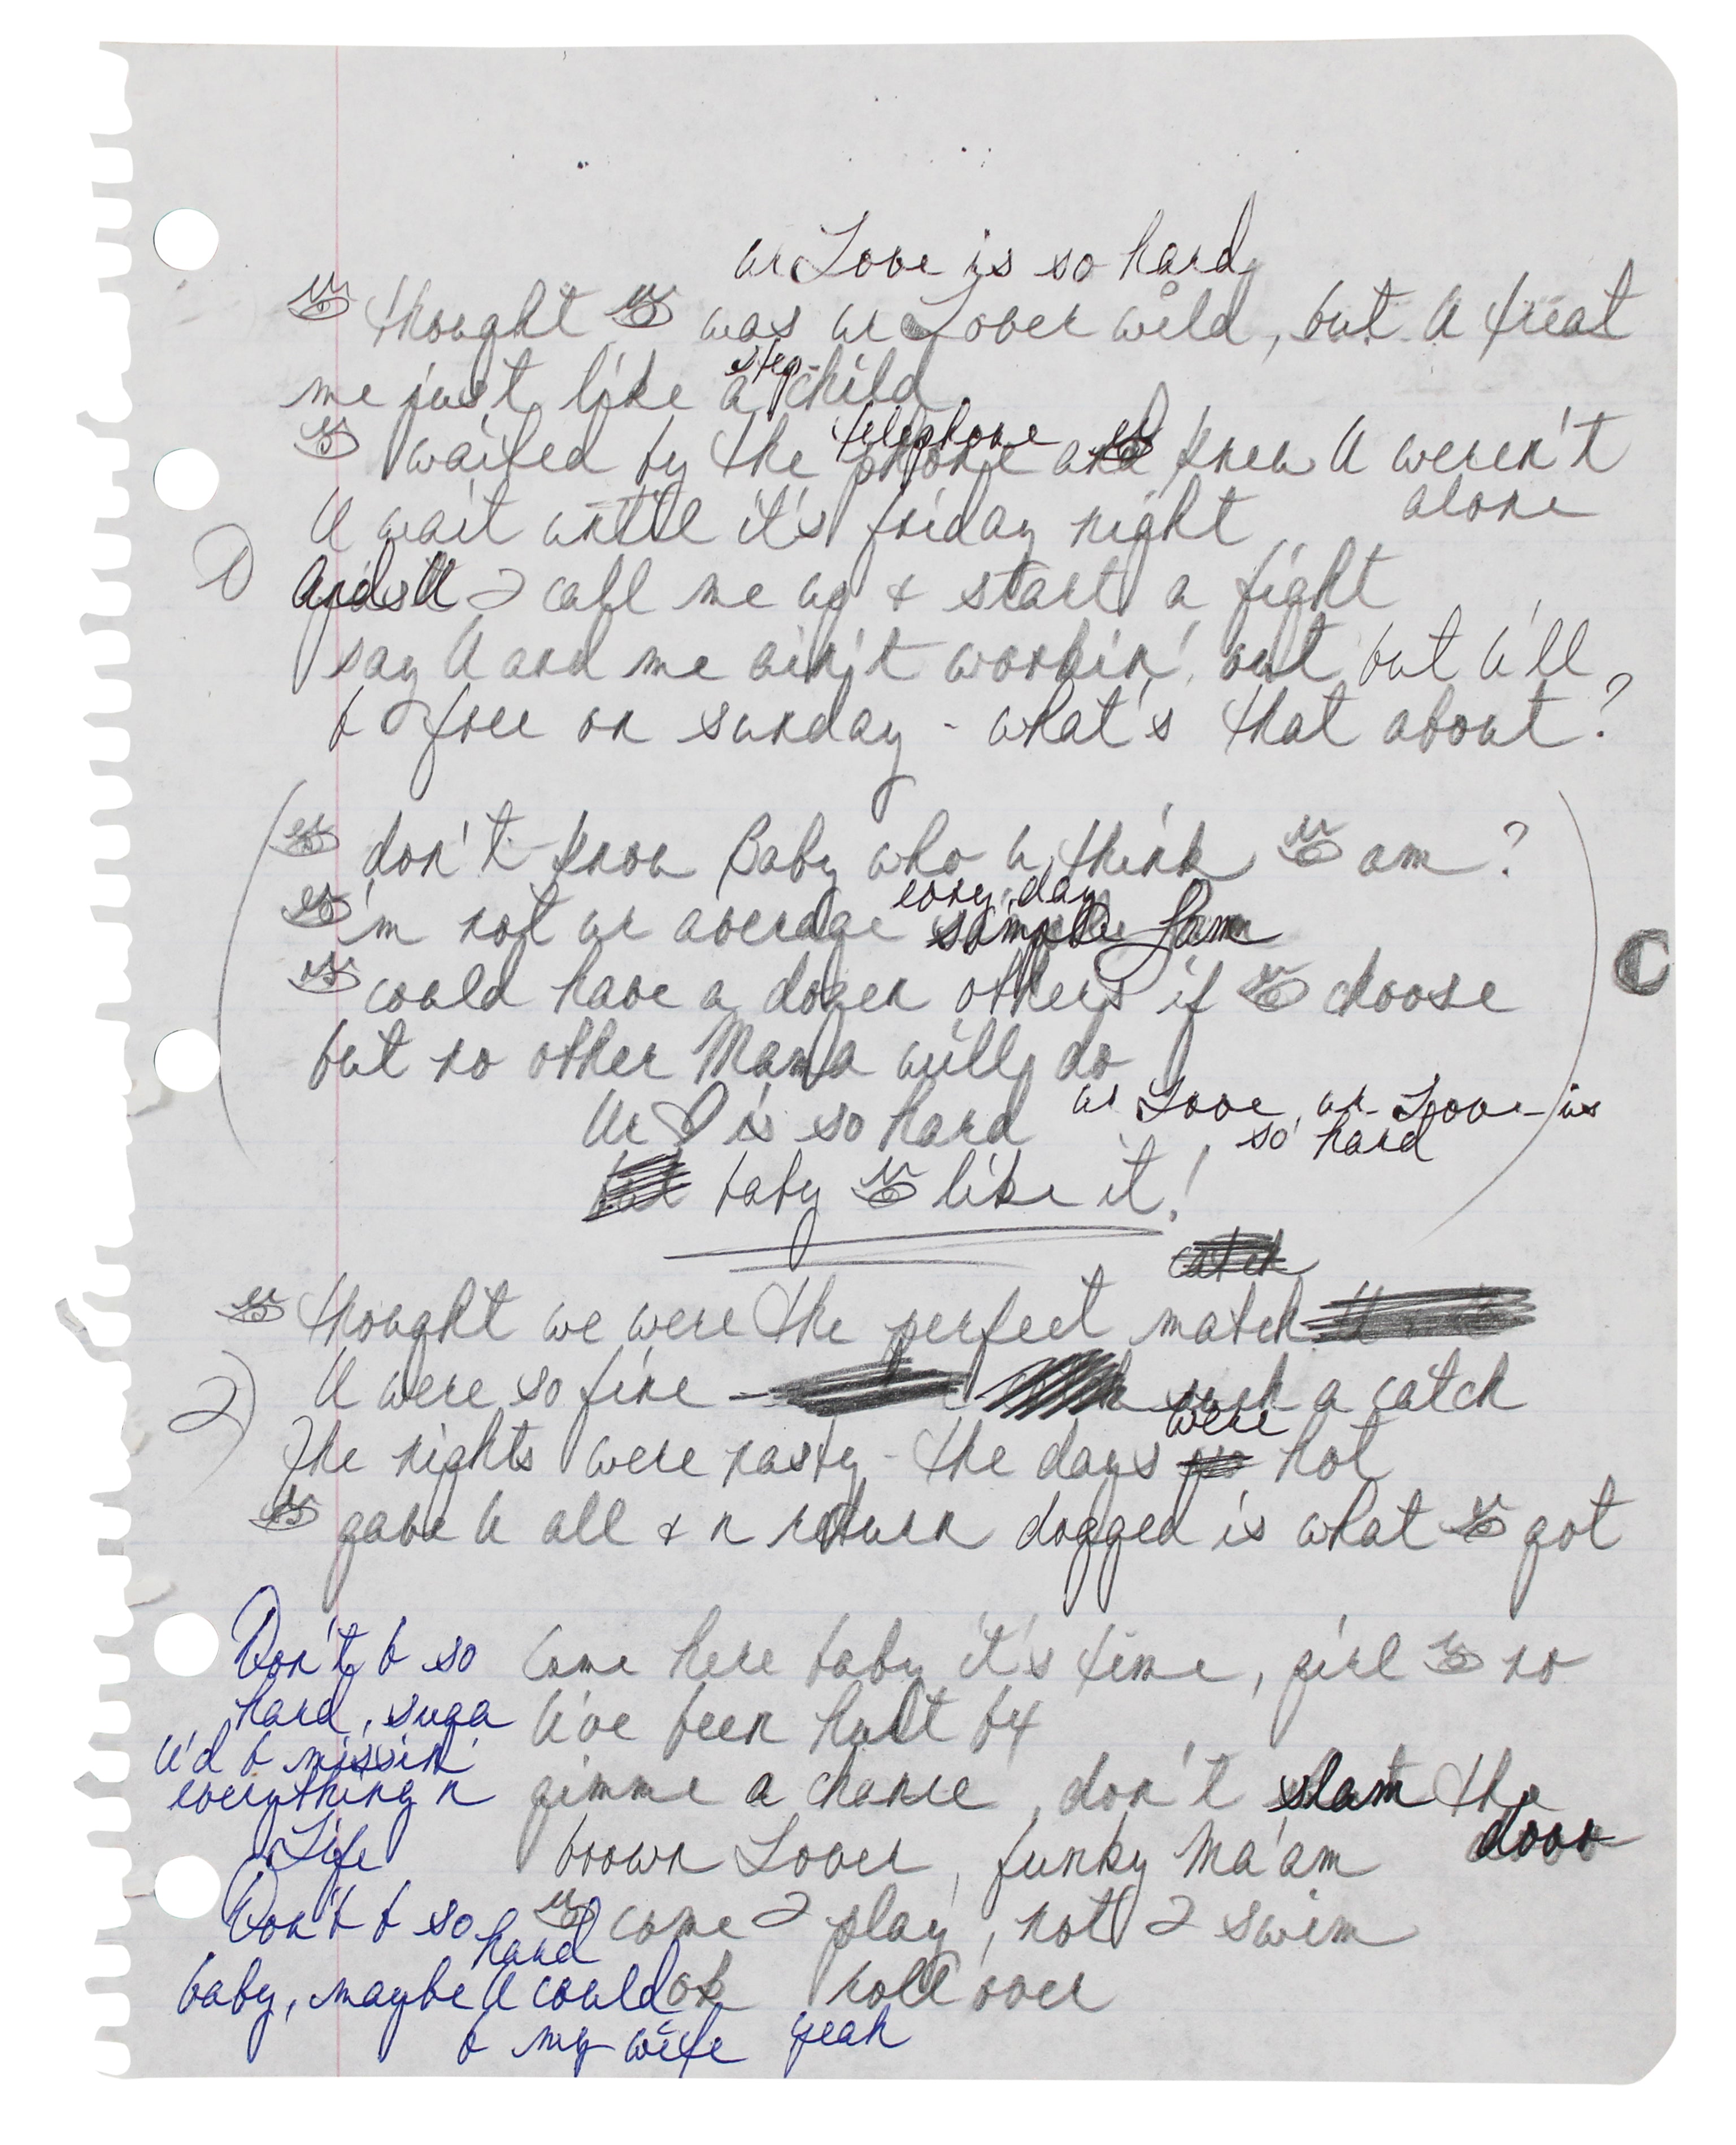 ur Love is so hard
👁 thought 👁 was ur Lover wild, but U treat
me just like a step-child
👁 waited by the telephone 👁 knew U weren't
alone
U wait until it's friday night
1) And U 2 call me up & start a fight
say U and me ain't workin' out but U'll
b free on sunday - what's that about?
👁 don't know Baby who u think 👁 am?
👁'm not ur average every day Sam
👁 could have a dozen others if 👁 choose
but no other Mama will do
C
Ur ♡ is so hard ur Love, ur Love is
so hard
baby 👁 like it!
catch
👁 thought we were the perfect match
2) U were so fine - such a catch
The nights were nasty - the days were hot
👁 gave U all & n return dogged is what 👁 got
Come here baby it's time, girl 👁 no
U've been hurt b4
gimme a chance, don't slam the
door
brown Lover, funky Ma'am
👁 come 2 play, not 2 swim
ok roll over
yeah
Don't b so
hard, suga
U'd b missin'
everything n
Life
Don't b so
hard
baby, maybe U could
b my wife